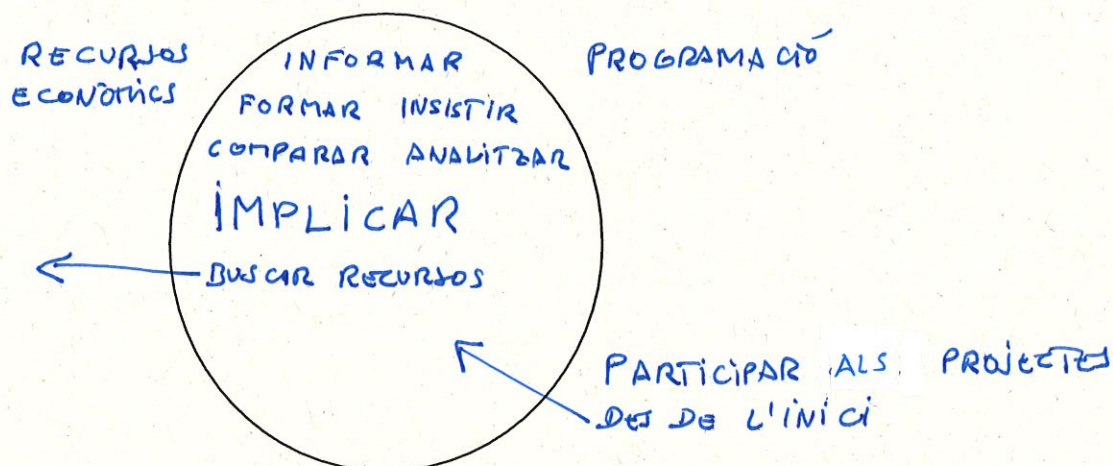 RECURSOS
ECONÒMICS
INFORMAR
FORMAR INSISTIR
COMPARAR ANALITZAR
IMPLICAR
BUSCAR RECURSOS
PROGRAMACIÓ
PARTICIPAR ALS PROJECTES
DES DE L'INICI